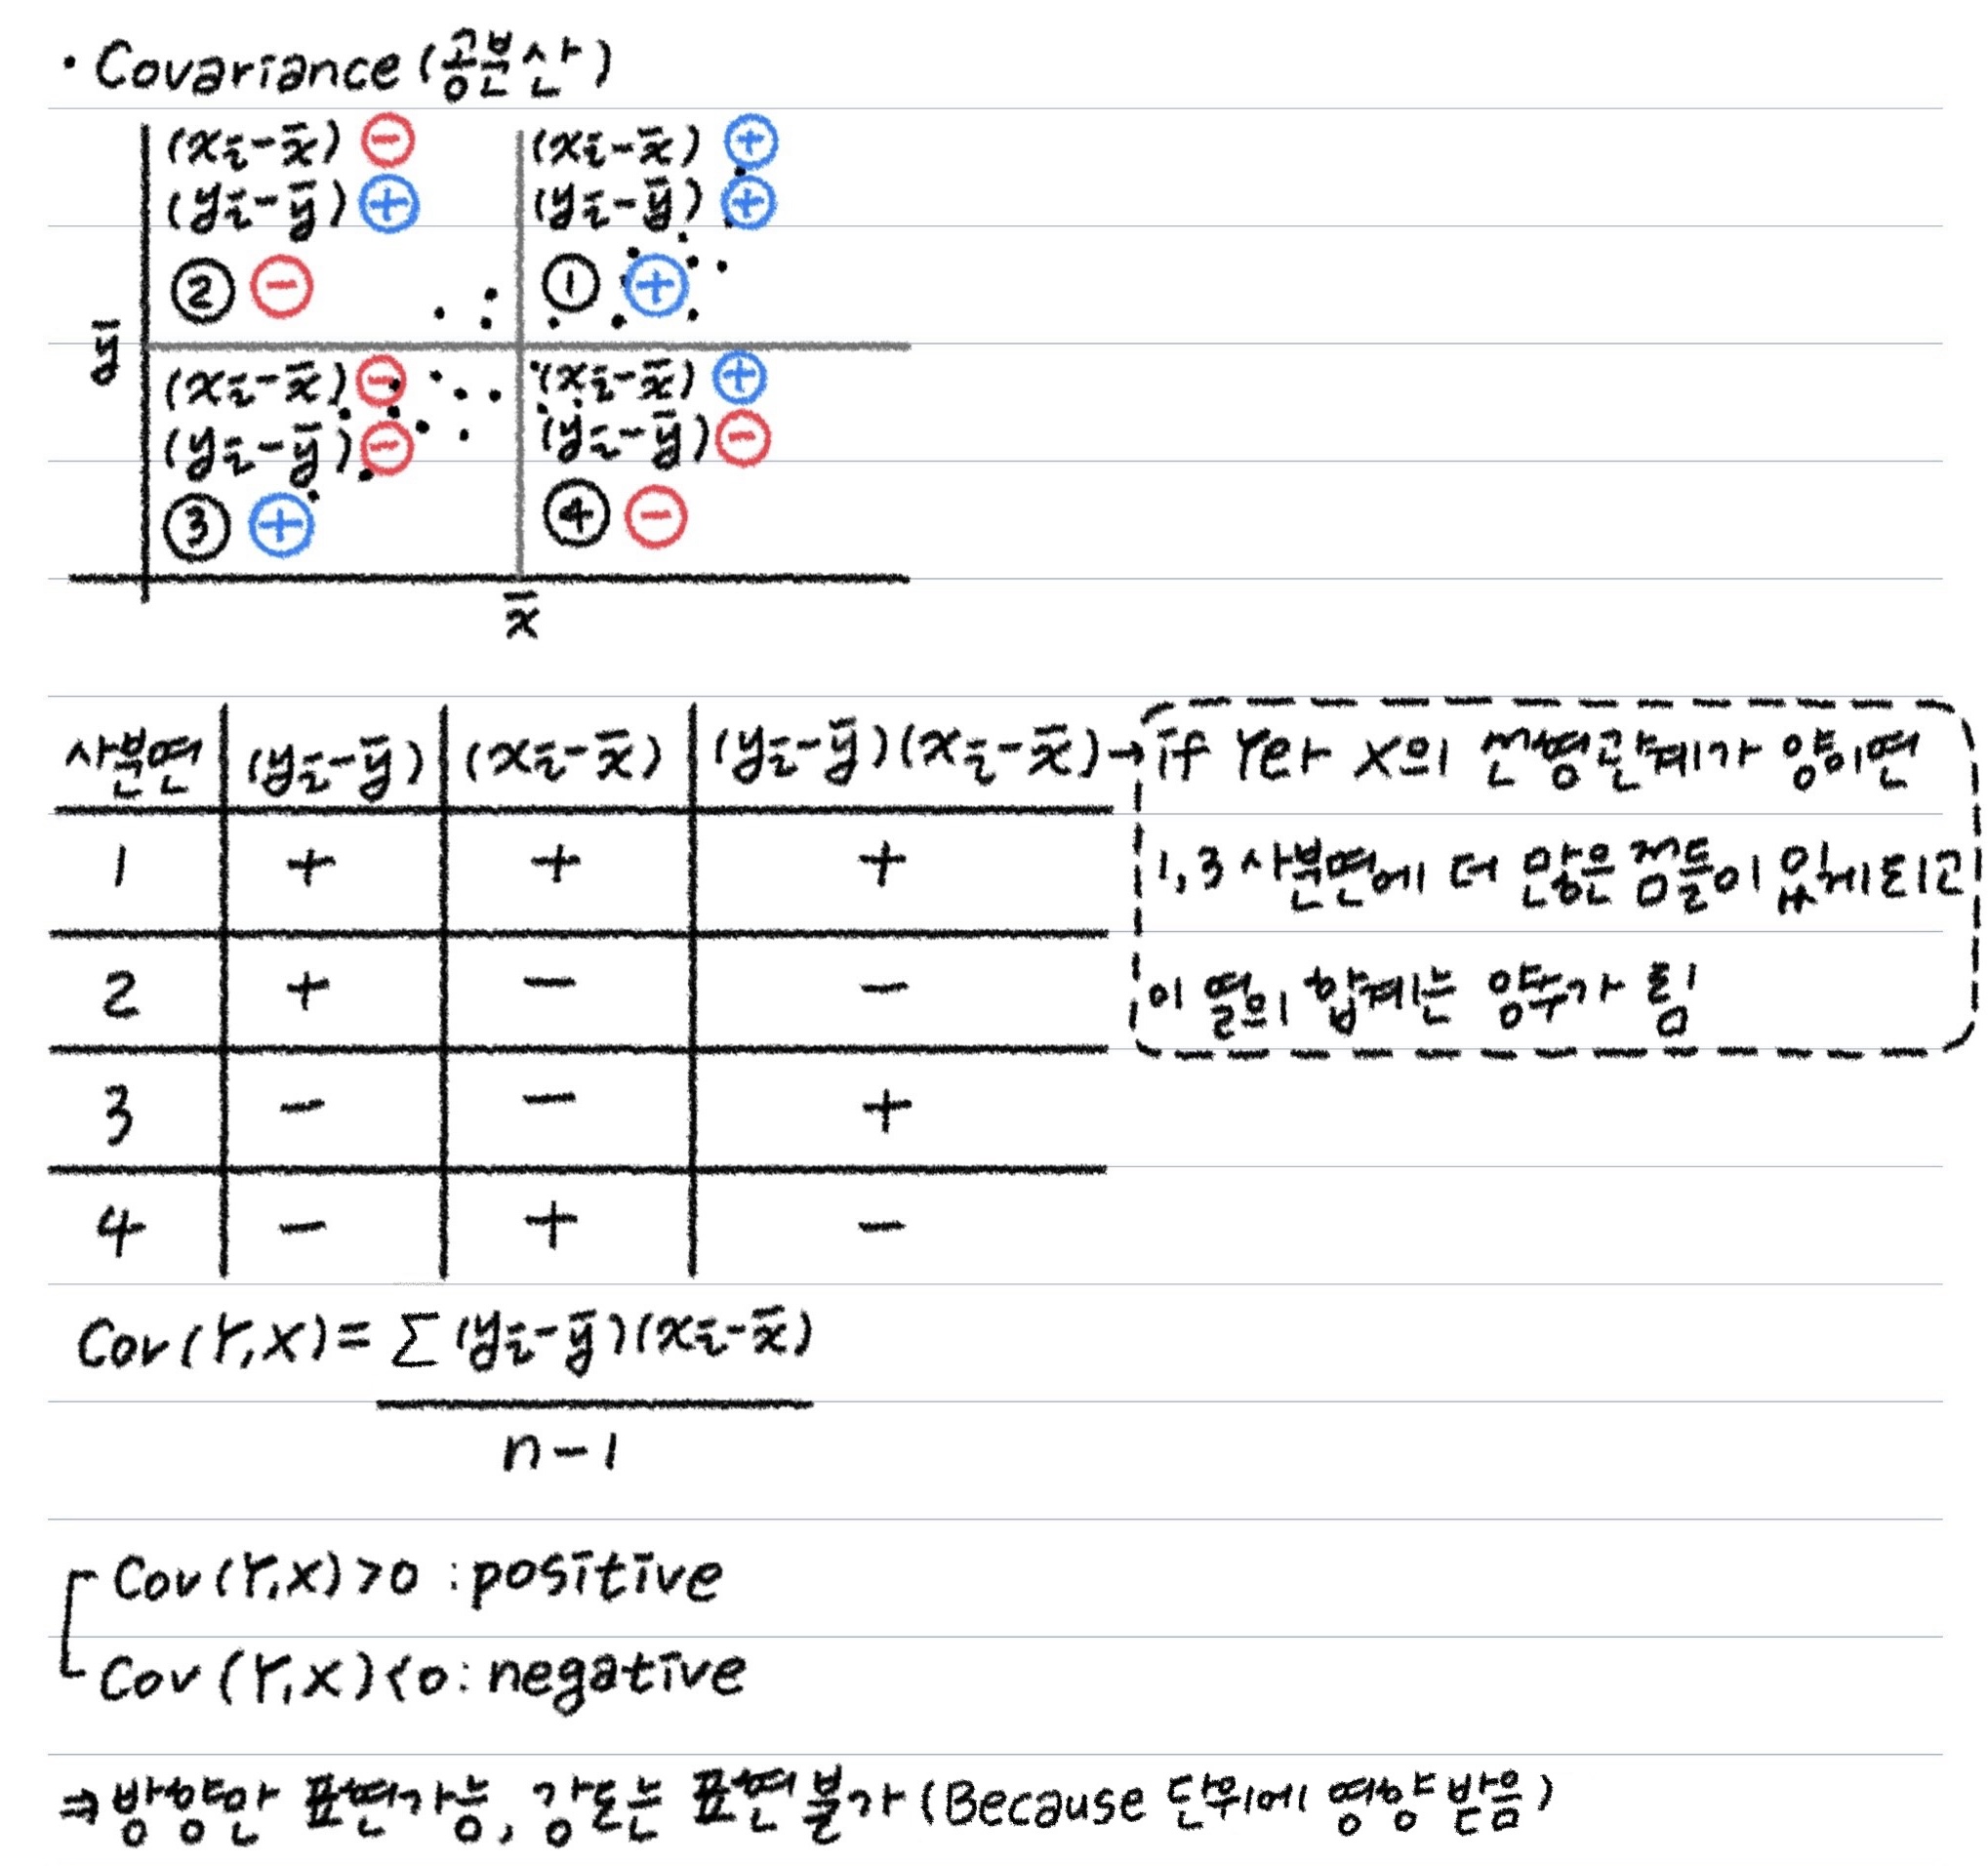 · Covariance (공분산)
(xi-x̄) ⊖ (xi-x̄) ⊕
(yi-ȳ) ⊕ (yi-ȳ) ⊕
② ⊖ ① ⊕
ȳ
(xi-x̄) ⊖ (xi-x̄) ⊕
(yi-ȳ) ⊖ (yi-ȳ) ⊖
③ ⊕ ④ ⊖
x̄
사분면 (yi-ȳ) (xi-x̄) (yi-ȳ)(xi-x̄) → if Y와 X의 선형관계가 양이면
1 + + + 1,3 사분면에 더 많은 점들이 있게되고
2 + - - 이 열의 합계는 양수가 됨
3 - - +
4 - + -
Cov(Y,X) = Σ(yi-ȳ)(xi-x̄)
n-1
Cov(Y,X)>0 : positive
Cov(Y,X)<0 : negative
⇒ 방향만 표현가능, 강도는 표현 불가 (Because 단위에 영향 받음)